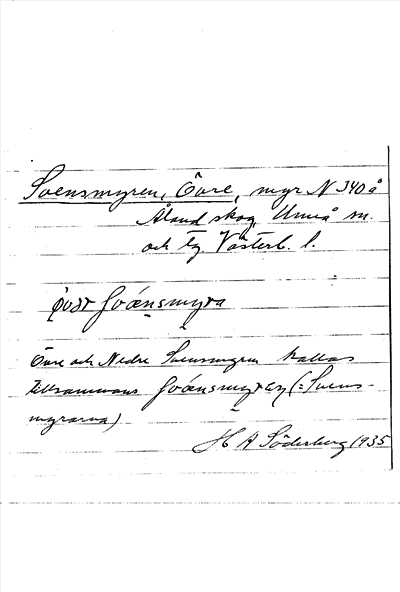 Svensmyren, Övre, myr N 340 å
Åland skog Umeå sn.
och tg Västerb. l.
Övre och Nedre Svensmyren kallas
tillsammans (= Svens-
myrarna)
H A Söderberg 1935